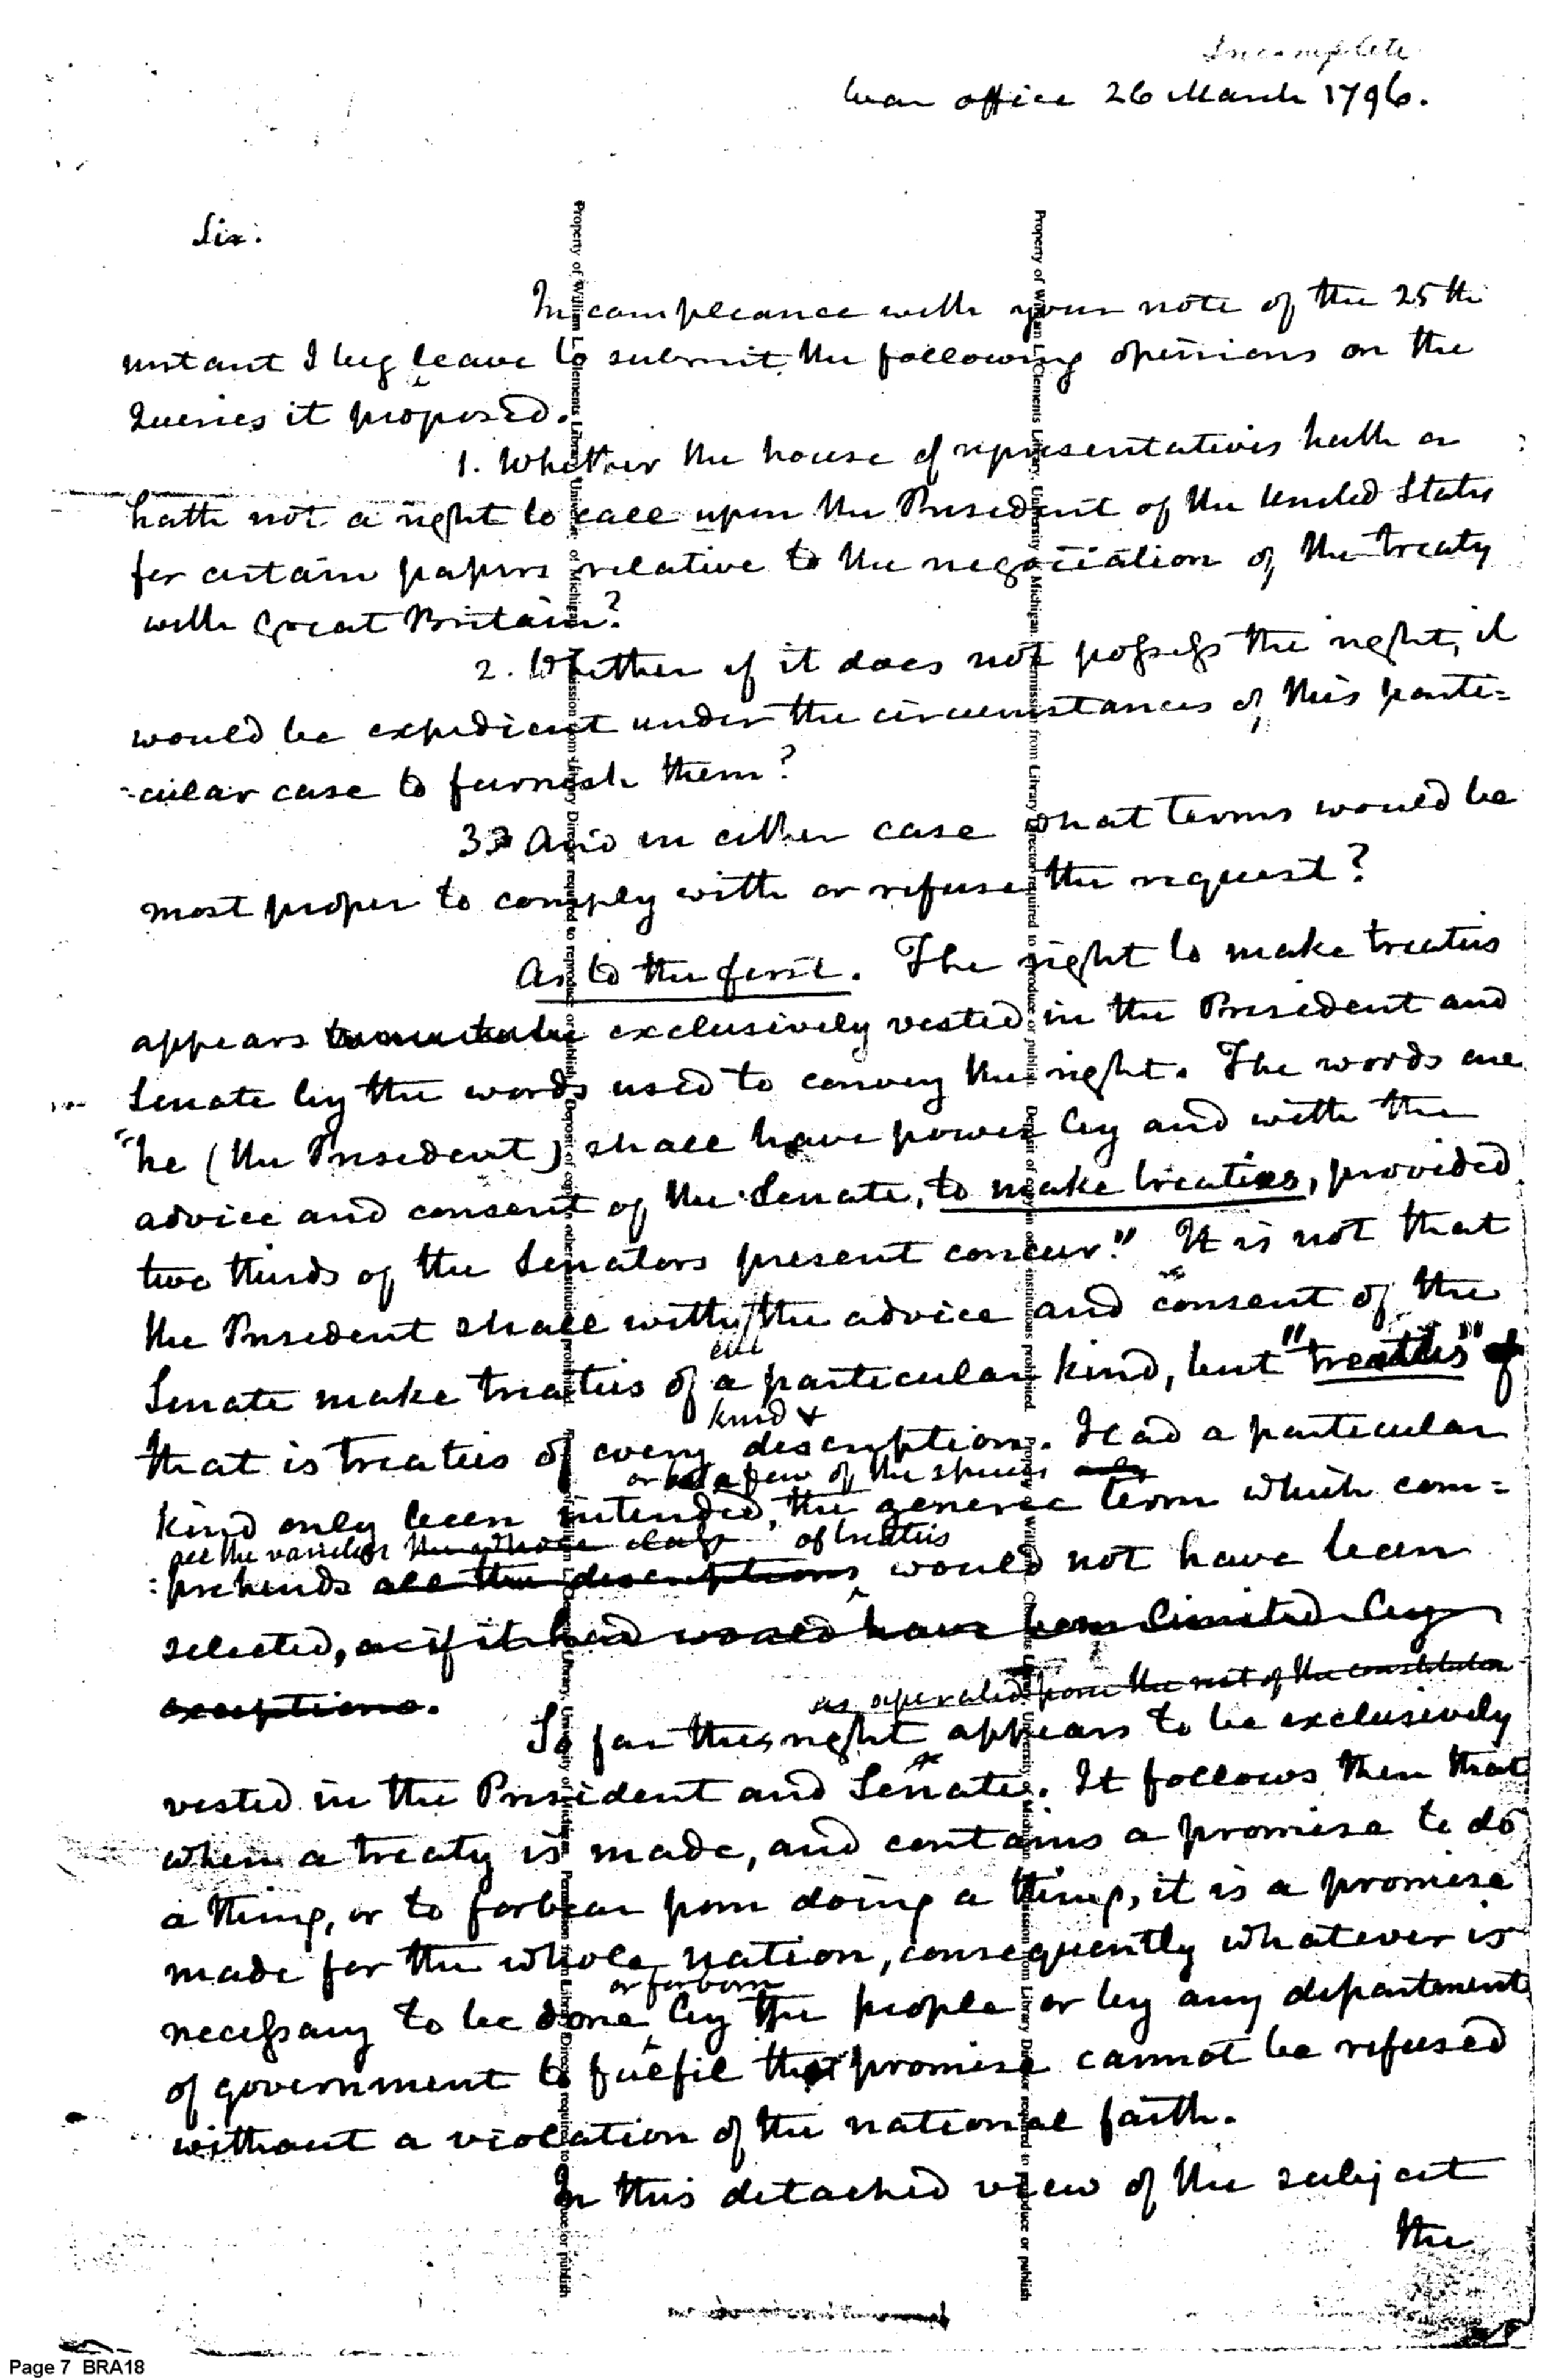 Incomplete
War office 26 March 1796.
Sir:
In compliance with your note of the 25th
instant I beg leave to submit the following opinions on the
Queries it proposed.
1. Whether the house of representatives hath or
hath not a right to call upon the President of the United States
for certain papers relative to the negociation of the treaty
with Great Britain?
2. Whether if it does not possess the right, it
would be expedient under the circumstances of this parti=
=cular case to furnish them?
3 And in either case what terms would be
most proper to comply with or refuse the request?
As to the first. The right to make treaties
appears exclusively vested in the President and
Senate by the words used to convey the right. The words are
"he (the President) shall have power by and with the
advice and consent of the Senate, to make treaties, provided
two thirds of the Senators present concur." It is not that
the President shall with the advice and consent of the
Senate make treaties of a particular kind, but "treaties" of
kind &
that is treaties of every description. Had a particular
or a few of the species only
kind only been intended, the generic term which com=
all the varieties the whole class of treaties
:prehends all the descriptions would not have been
selected, as if it had would have been limited by
exceptions.
as seperated from the rest of the constitution
So far this right appears to be exclusively
vested in the President and Senate. It follows then that
when a treaty is made, and contains a promise to do
a thing, or to forbear from doing a thing, it is a promise
made for the whole nation, consequently whatever is
or forborn
necessary to be done by the people or by any department
of government to fulfil that promise cannot be refused
without a violation of the national faith.
In this detached view of the subject
the
Property of William L. Clements Library, University of Michigan. Permission from Library Director required to reproduce or publish. Deposit of copy in other institutions prohibited.
Property of William L. Clements Library, University of Michigan. Permission from Library Director required to reproduce or publish
Property of William L. Clements Library, University of Michigan. Permission from Library Director required to reproduce or publish. Deposit of copy in other institutions prohibited.
Property of William L. Clements Library, University of Michigan. Permission from Library Director required to reproduce or publish
Page 7 BRA18